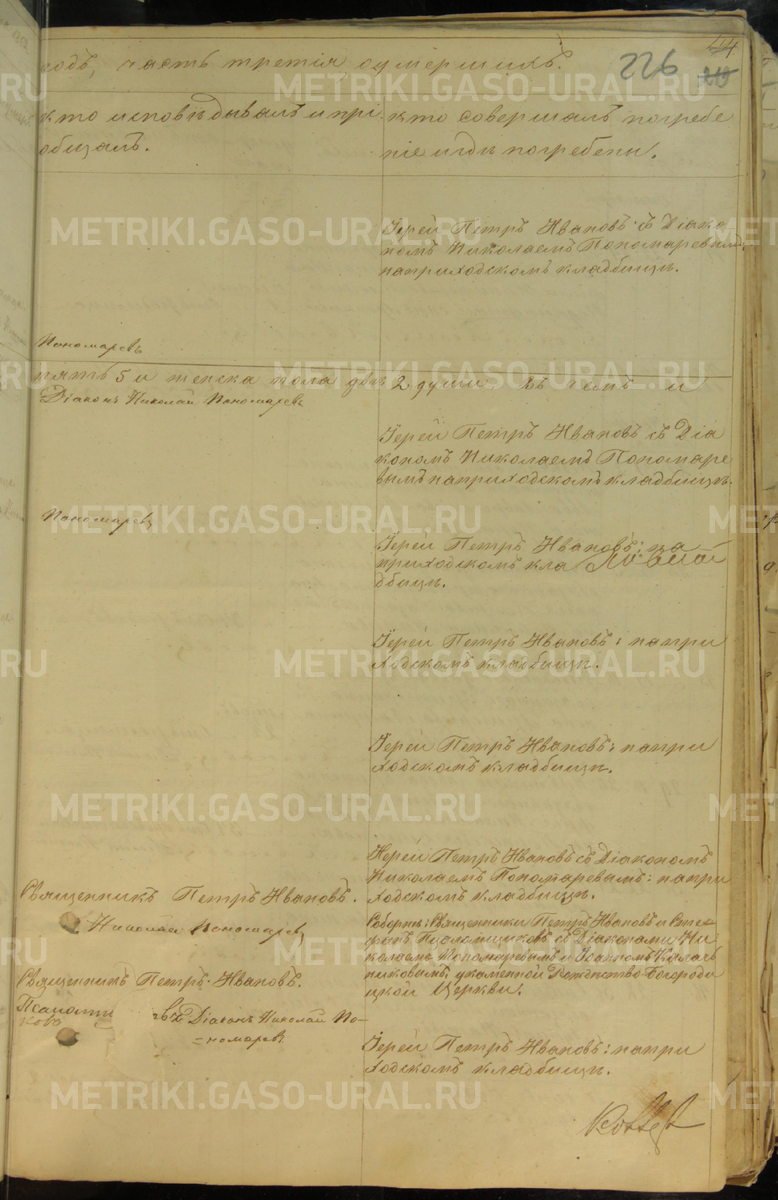 годъ, часть третія, о умершихъ.
226
44
кто исповѣдывалъ и прі
общалъ.
кто совершалъ погребе
ніе и гдѣ погребены.
Іерей Петръ Ивановъ съ Діако
номъ Николаемъ Пономаревымъ
на приходскомъ кладбищѣ.
Пономаревъ
пять 5 и женска пола двѣ 2 души. Въ чемъ и
Діаконъ Николай Пономаревъ
Іерей Петръ Ивановъ съ Діа
кономъ Николаемъ Пономаре
вымъ на приходскомъ кладбищѣ.
Пономаревъ
Іерей Петръ Ивановъ: на
приходскомъ кла
дбищѣ.
Іерей Петръ Ивановъ: на при
ходскомъ кладбищѣ.
Іерей Петръ Ивановъ: на при
ходскомъ кладбищѣ.
Іерей Петръ Ивановъ съ Діакономъ
Николаемъ Пономаревымъ: на при
ходскомъ кладбищѣ.
Священникъ Петръ Ивановъ.
Николай Пономаревъ
Соборнѣ: Священники Петръ Ивановъ и
съ Діаконами Ни
колаемъ Пономаревымъ и Іоанномъ
у каменной Рождество-Богороди
цкой Церкви.
Священникъ Петръ Ивановъ.
Діаконъ Николай По-
=номаревъ
Іерей Петръ Ивановъ: на при
ходскомъ кладбищѣ.
METRIKI.GASO-URAL.RU